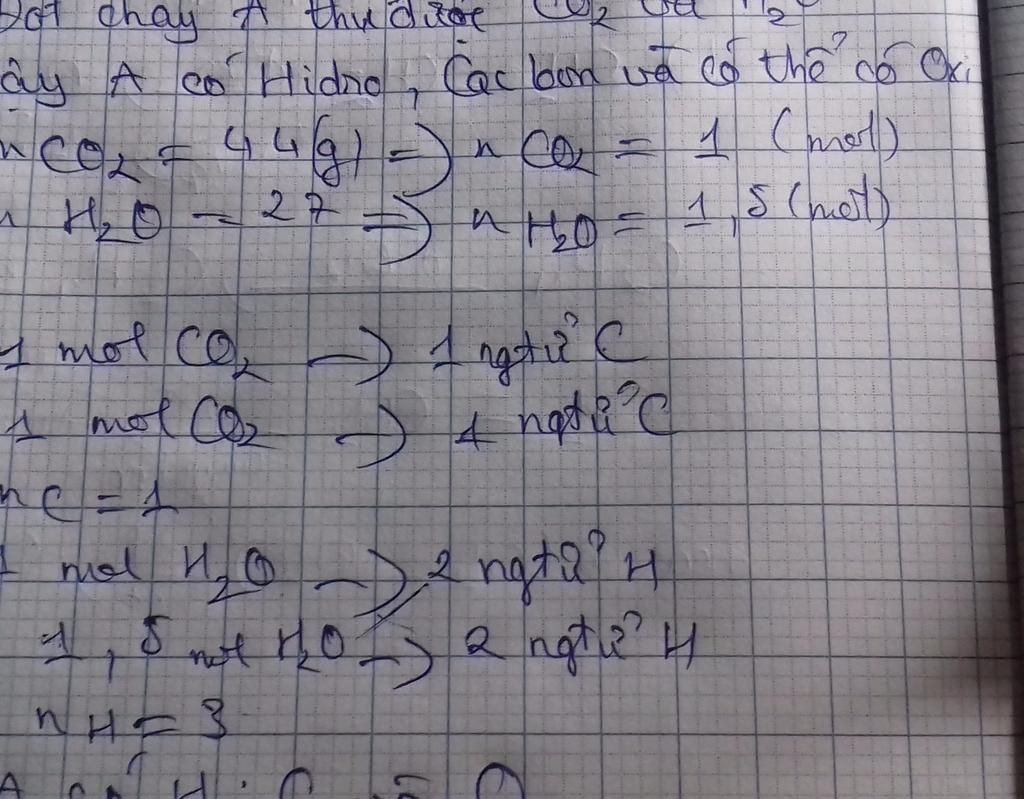 Đốt cháy A thu được CO2 và H2O
ây A có Hidro, Các bon và có thể có Oxi
nCO2 = 44(g) => nCO2 = 1 (mol)
H2O = 27 => nH2O = 1,5 (mol)
1 mol CO2 -> 1 ngtử C
1 mol CO2 -> 1 ngtử C
nC = 1
1 mol H2O -> 2 ngtử H
1,5 mol H2O -> 2 ngtử H
nH = 3